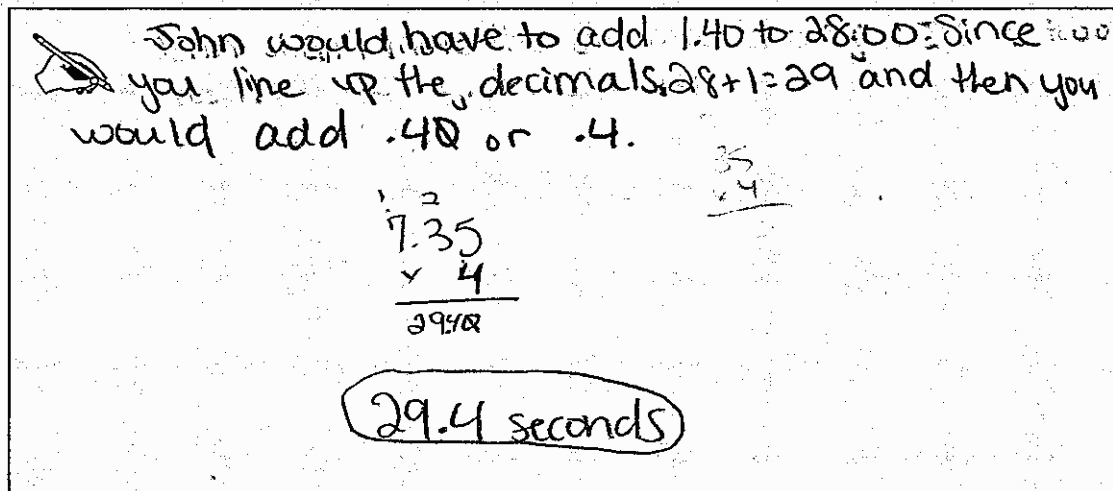 John would have to add 1.40 to 28.00. Since
you line up the decimals. 28+1=29 and then you
would add .40 or .4.
35
.4
1 2
7.35
× 4
29.40
29.4 seconds